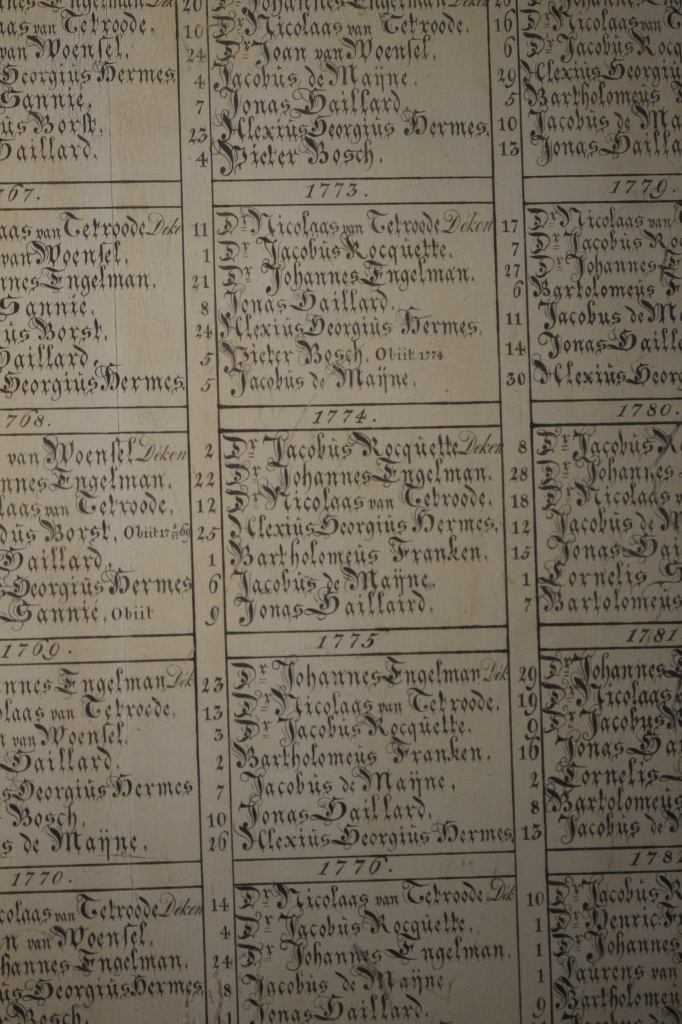 aas van Tetroode.
van Woensel.
Georgiüs Hermes
Sannie.
üs Borst.
Gaillard.
767.
aas van Tetroode Dek
van Woensel.
nnes Engelman.
Sannie.
üs Borst.
Gaillard.
Georgiüs Hermes.
768.
van Woensel Deken
nnes Engelman.
laas van Tetroode.
düs Borst. Obiit
Gaillard.
Georgiüs Hermes
Sannie, Obiit
1769.
nnes Engelman Dek
olaas van Tetroode.
n van Woensel.
Gaillard.
s Georgiüs Hermes
Bosch.
s de Maÿne.
1770.
colaas van Tetroode Deken
n van Woensel.
hannes Engelman.
üs Georgiüs Hermes.
Bosch.
20 Johannes Engelman
10 Dr Nicolaas van Tetroode.
24 Dr Joan van Woensel.
4 Jacobüs de Maÿne.
7 Jonas Gaillard.
23 Alexiüs Georgiüs Hermes.
4 Pieter Bosch.
1773.
11 Dr Nicolaas van Tetroode Deken
1 Dr Jacobüs Rocqüette.
21 Dr Johannes Engelman.
8 Jonas Gaillard.
24 Alexiüs Georgiüs Hermes.
5 Pieter Bosch. Obiit 1774
5 Jacobüs de Maÿne.
1774.
2 Dr Jacobüs Rocqüette Deken
22 Dr Johannes Engelman.
12 Dr Nicolaas van Tetroode.
25 Alexiüs Georgiüs Hermes.
1 Bartholomeüs Franken.
6 Jacobüs de Maÿne.
9 Jonas Gaillaird.
1775
23 Dr Johannes Engelman Dek
13 Dr Nicolaas van Tetroode.
3 Dr Jacobüs Rocqüette.
2 Bartholomeüs Franken.
7 Jacobüs de Maÿne.
10 Jonas Gaillard.
26 Alexiüs Georgiüs Hermes.
1776.
14 Dr Nicolaas van Tetroode Dek
4 Dr Jacobüs Rocqüette.
24 Dr Johannes Engelman.
8 Jacobüs de Maÿne.
11 Jonas Gaillard.
16 Dr Nicolaas van
6 Dr Jacobüs Rocq
29 Alexiüs Georgiü
5 Bartholomeüs
10 Jacobüs de Ma
13 Jonas Gailla
1779.
17 Dr Nicolaas van
7 Dr Jacobüs Ro
27 Dr Johannes
6 Bartolomeüs
11 Jacobus de M
14 Jonas Gaill
30 Alexiüs Georg
1780.
8 Dr Jacobüs R
28 Dr Johannes
18 Dr Nicolaas v
12 Jacobüs de M
15 Jonas Gai
1 Cornelis S
7 Bartolomeüs
1781
29 Dr Johannes
19 Dr Nicolaas
9 Dr Jacobüs
16 Jonas Ga
2 Cornelis
8 Bartolomeüs
13 Jacobüs de
178
10 Dr Jacobüs
1 Dr Henric
1 Dr Johannes
1 Laurens van
9 Bartholomeü